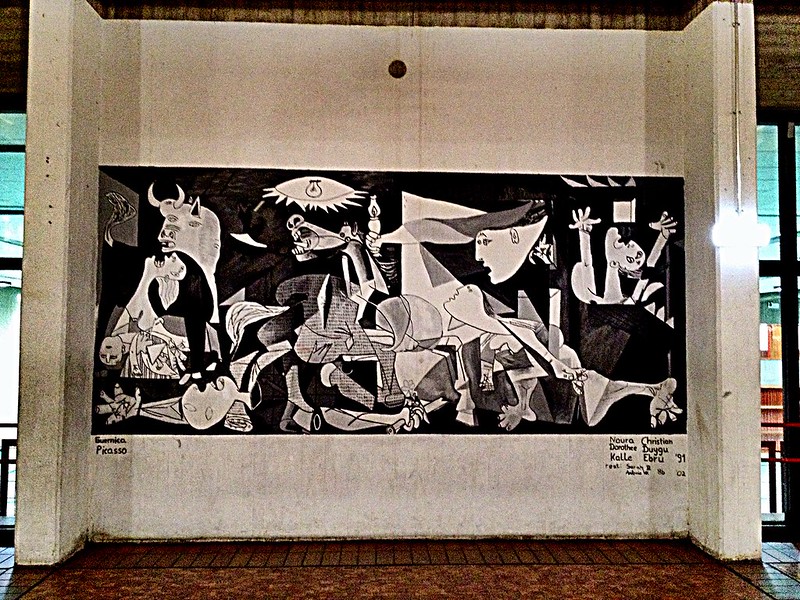 Guernica
Picasso
Noura Christian
Dorothee Duygu
Kalle Ebru '91
rest. Sarah
Antonia '02